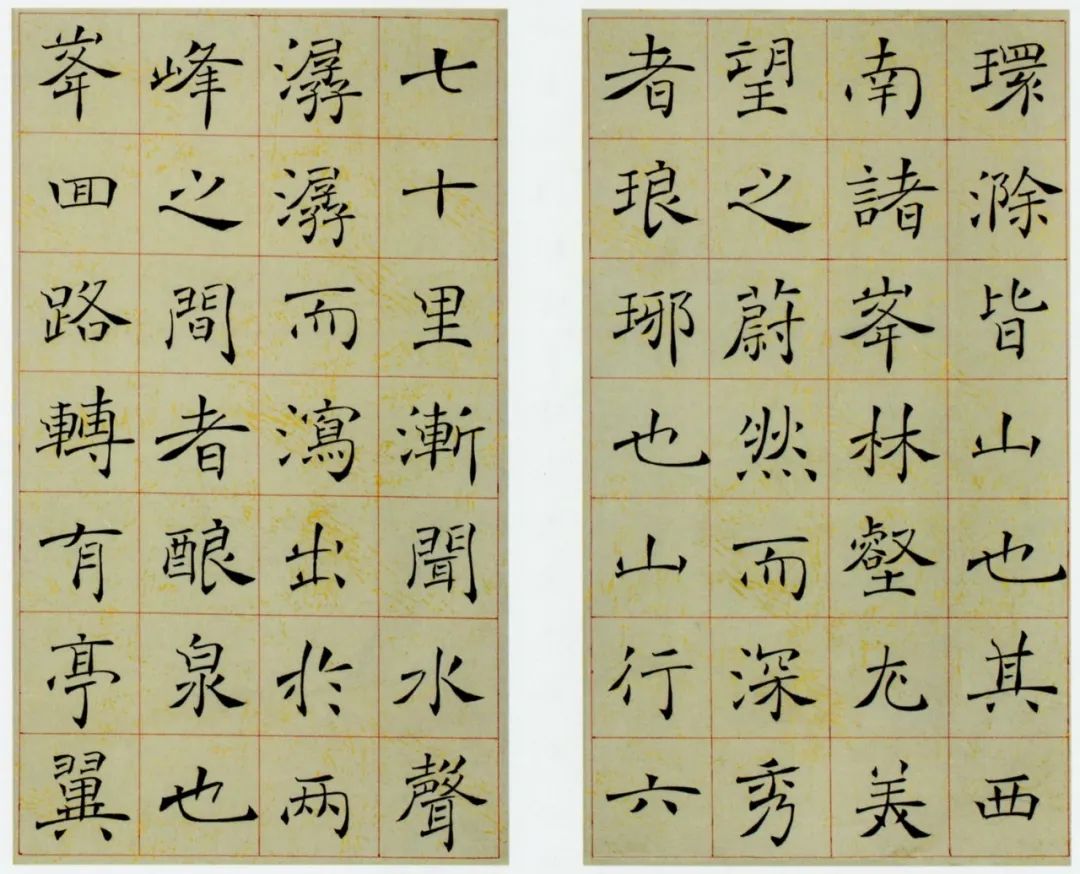 環滁皆山也其西
南諸峯林壑尤美
望之蔚然而深秀
者琅琊也山行六
七十里漸聞水聲
潺潺而瀉出於兩
峰之間者酿泉也
峯囬路轉有亭翼